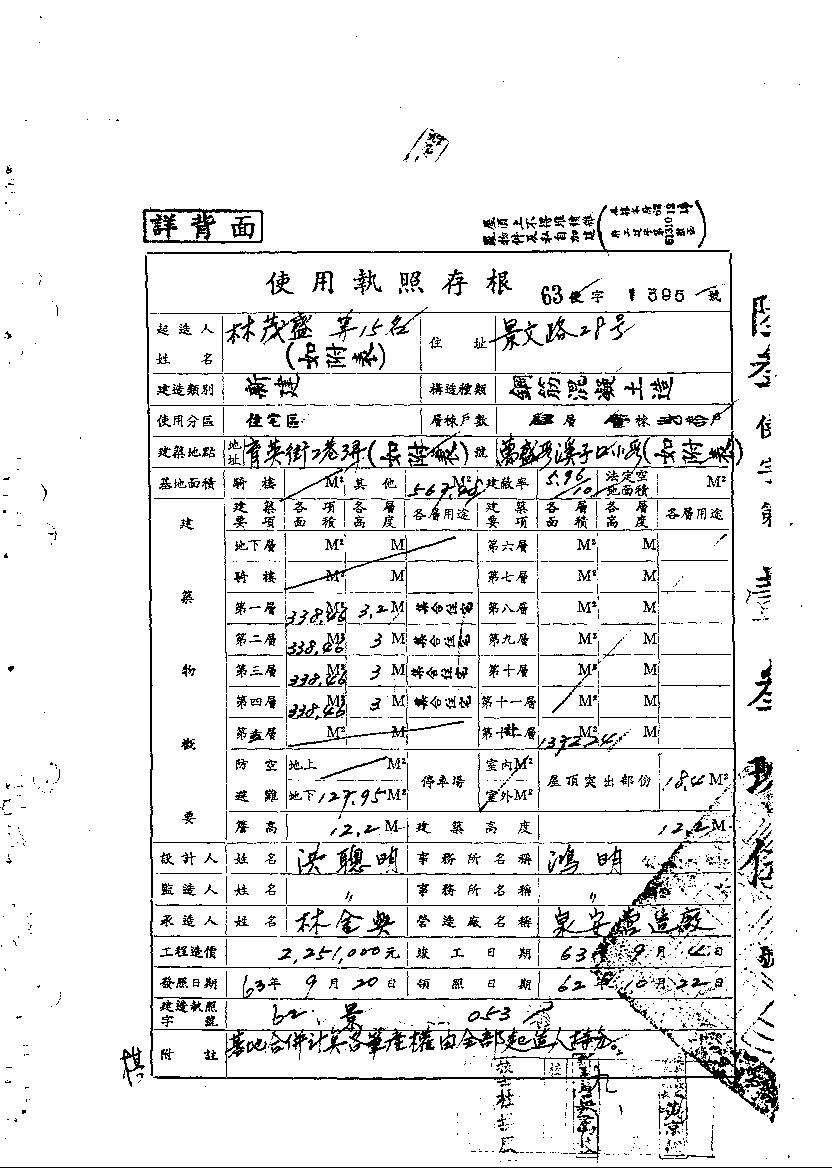 詳背面
使用執照存根
63使字 1395 號
起造人姓名 林茂盛 等15名 (如附表) 住址 景文路28号
建造類別 新建 構造種類 鋼筋混凝土造
使用分區 住宅區 層棟戶數 層 棟 戶
建築地點 地址 育英街2巷3弄(如附表)號 萬盛段溪子口小段(如附表)
基地面積 騎樓 M² 其他 M² 建蔽率 5.96/10 法定空地面積 M²
建築物概要
建築要項 各項面積 各層高度 各層用途 建築要項 各層面積 各層高度 各層用途
地下層 M² M 第六層 M² M
騎樓 M² M 第七層 M² M
第一層 338.46 M² 3.2 M 集合住宅 第八層 M² M
第二層 338.46 M² 3 M 集合住宅 第九層 M² M
第三層 338.46 M² 3 M 集合住宅 第十層 M² M
第四層 338.46 M² 3 M 集合住宅 第十一層 M² M
第五層 M² M 層 M² M
防空避難 地上 M² 地下 127.95 M² 停車場 室內 M² 室外 M² 屋頂突出部份 18.4 M²
簷高 12.2 M 建築高度 12.2 M
設計人 姓名 洪聰明 事務所名稱 鴻明
監造人 姓名 〃 事務所名稱 〃
承造人 姓名 林金興 營造廠名稱 泉安營造廠
工程造價 2,251,000元 竣工日期 63年9月4日
發照日期 63年9月20日 領照日期 62年10月22日
建造執照字號 62.景 053
附註 基地合併計算各筆產權由全部起造人持分。